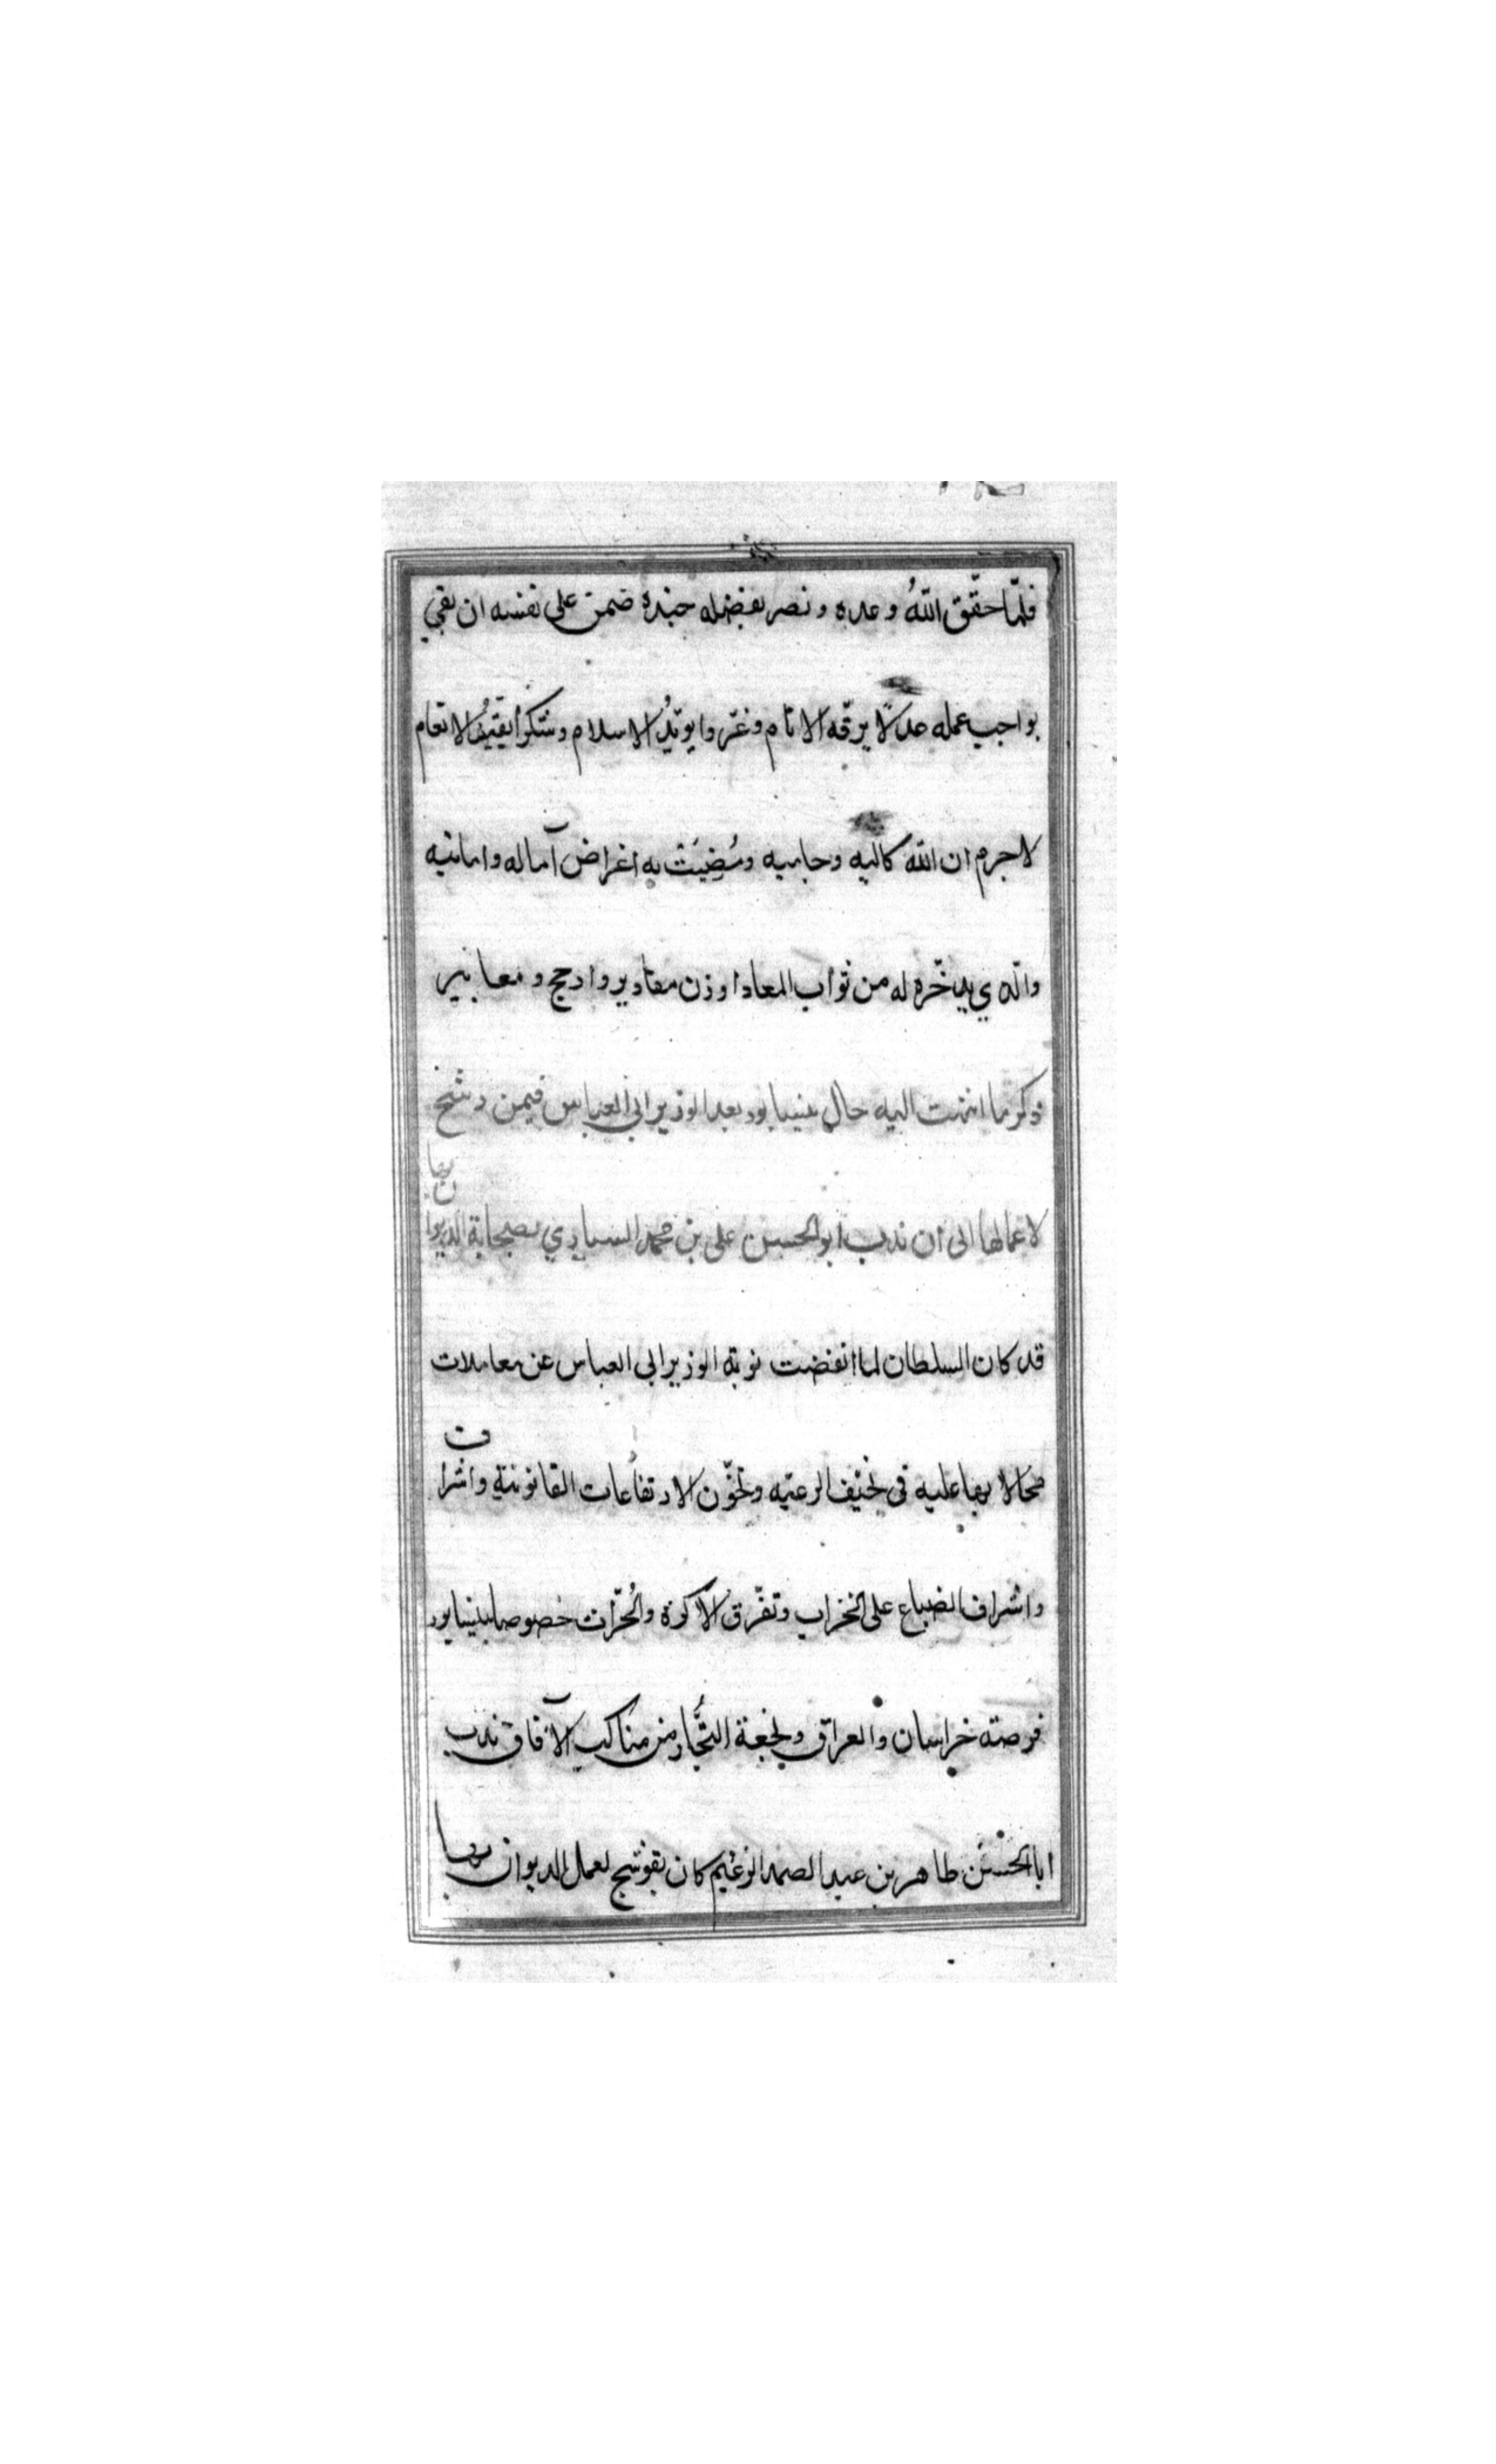 فلمّا حقّق اللهُ وعده ونصر بفضله جنده ضمن على نفسه ان يقي
بواجب عمله عدلًا يرفّه الانام وغزوا يويّدُ الاسلام وشكرا يقيّدُ الانعام
لا جرم ان الله كاليه وحاميه ومُضِيَت به اغراض آماله وامانيه
والذي يدخّره له من ثواب المعاد اوزن مقادير وارجح ومعايير
ذكر ما انتهت اليه حال نيسابور بعد الوزير ابى العباس فيمن رشح
لاعمالها الى ان ندب ابو الحسن على بن محمد السياري لصحابة الديوان بها
قد كان السلطان لما انفضت نوبة الوزير ابى العباس عن معاملات
محالا بها عليه فى تحيّف الرعيّه وتخوّن الارتفاعات القانونية واشراف
واشراف الضياع على الخراب وتفرّق الاكرة والحُرّاث خصوصا بنيسابور
فرصته خراسان والعراق ونجعة التُّجار من مناكب الآفاق ندب
ابا الحسن طاهر بن عبد الصمد الزعيم كان بقوشنج لعمل الديوان بها